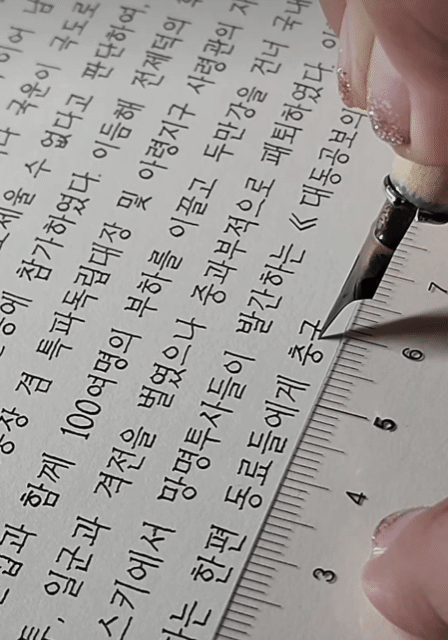 이어
국운이 극도로
세울 수 없다고 판단하여,
에 참가하였다. 이듬해 전제덕의
장 겸 특파독립대장 및 아령지구 사령관의 자
과 함께 100여명의 부하를 이끌고 두만강을 건너 국내
투, 일군과 격전을 벌였으나 중과부적으로 패퇴하였다. 이
스키에서 망명투사들이 발간하는 《대동공보의
는 한편 동료들에게 충구
3 4 5 6 7